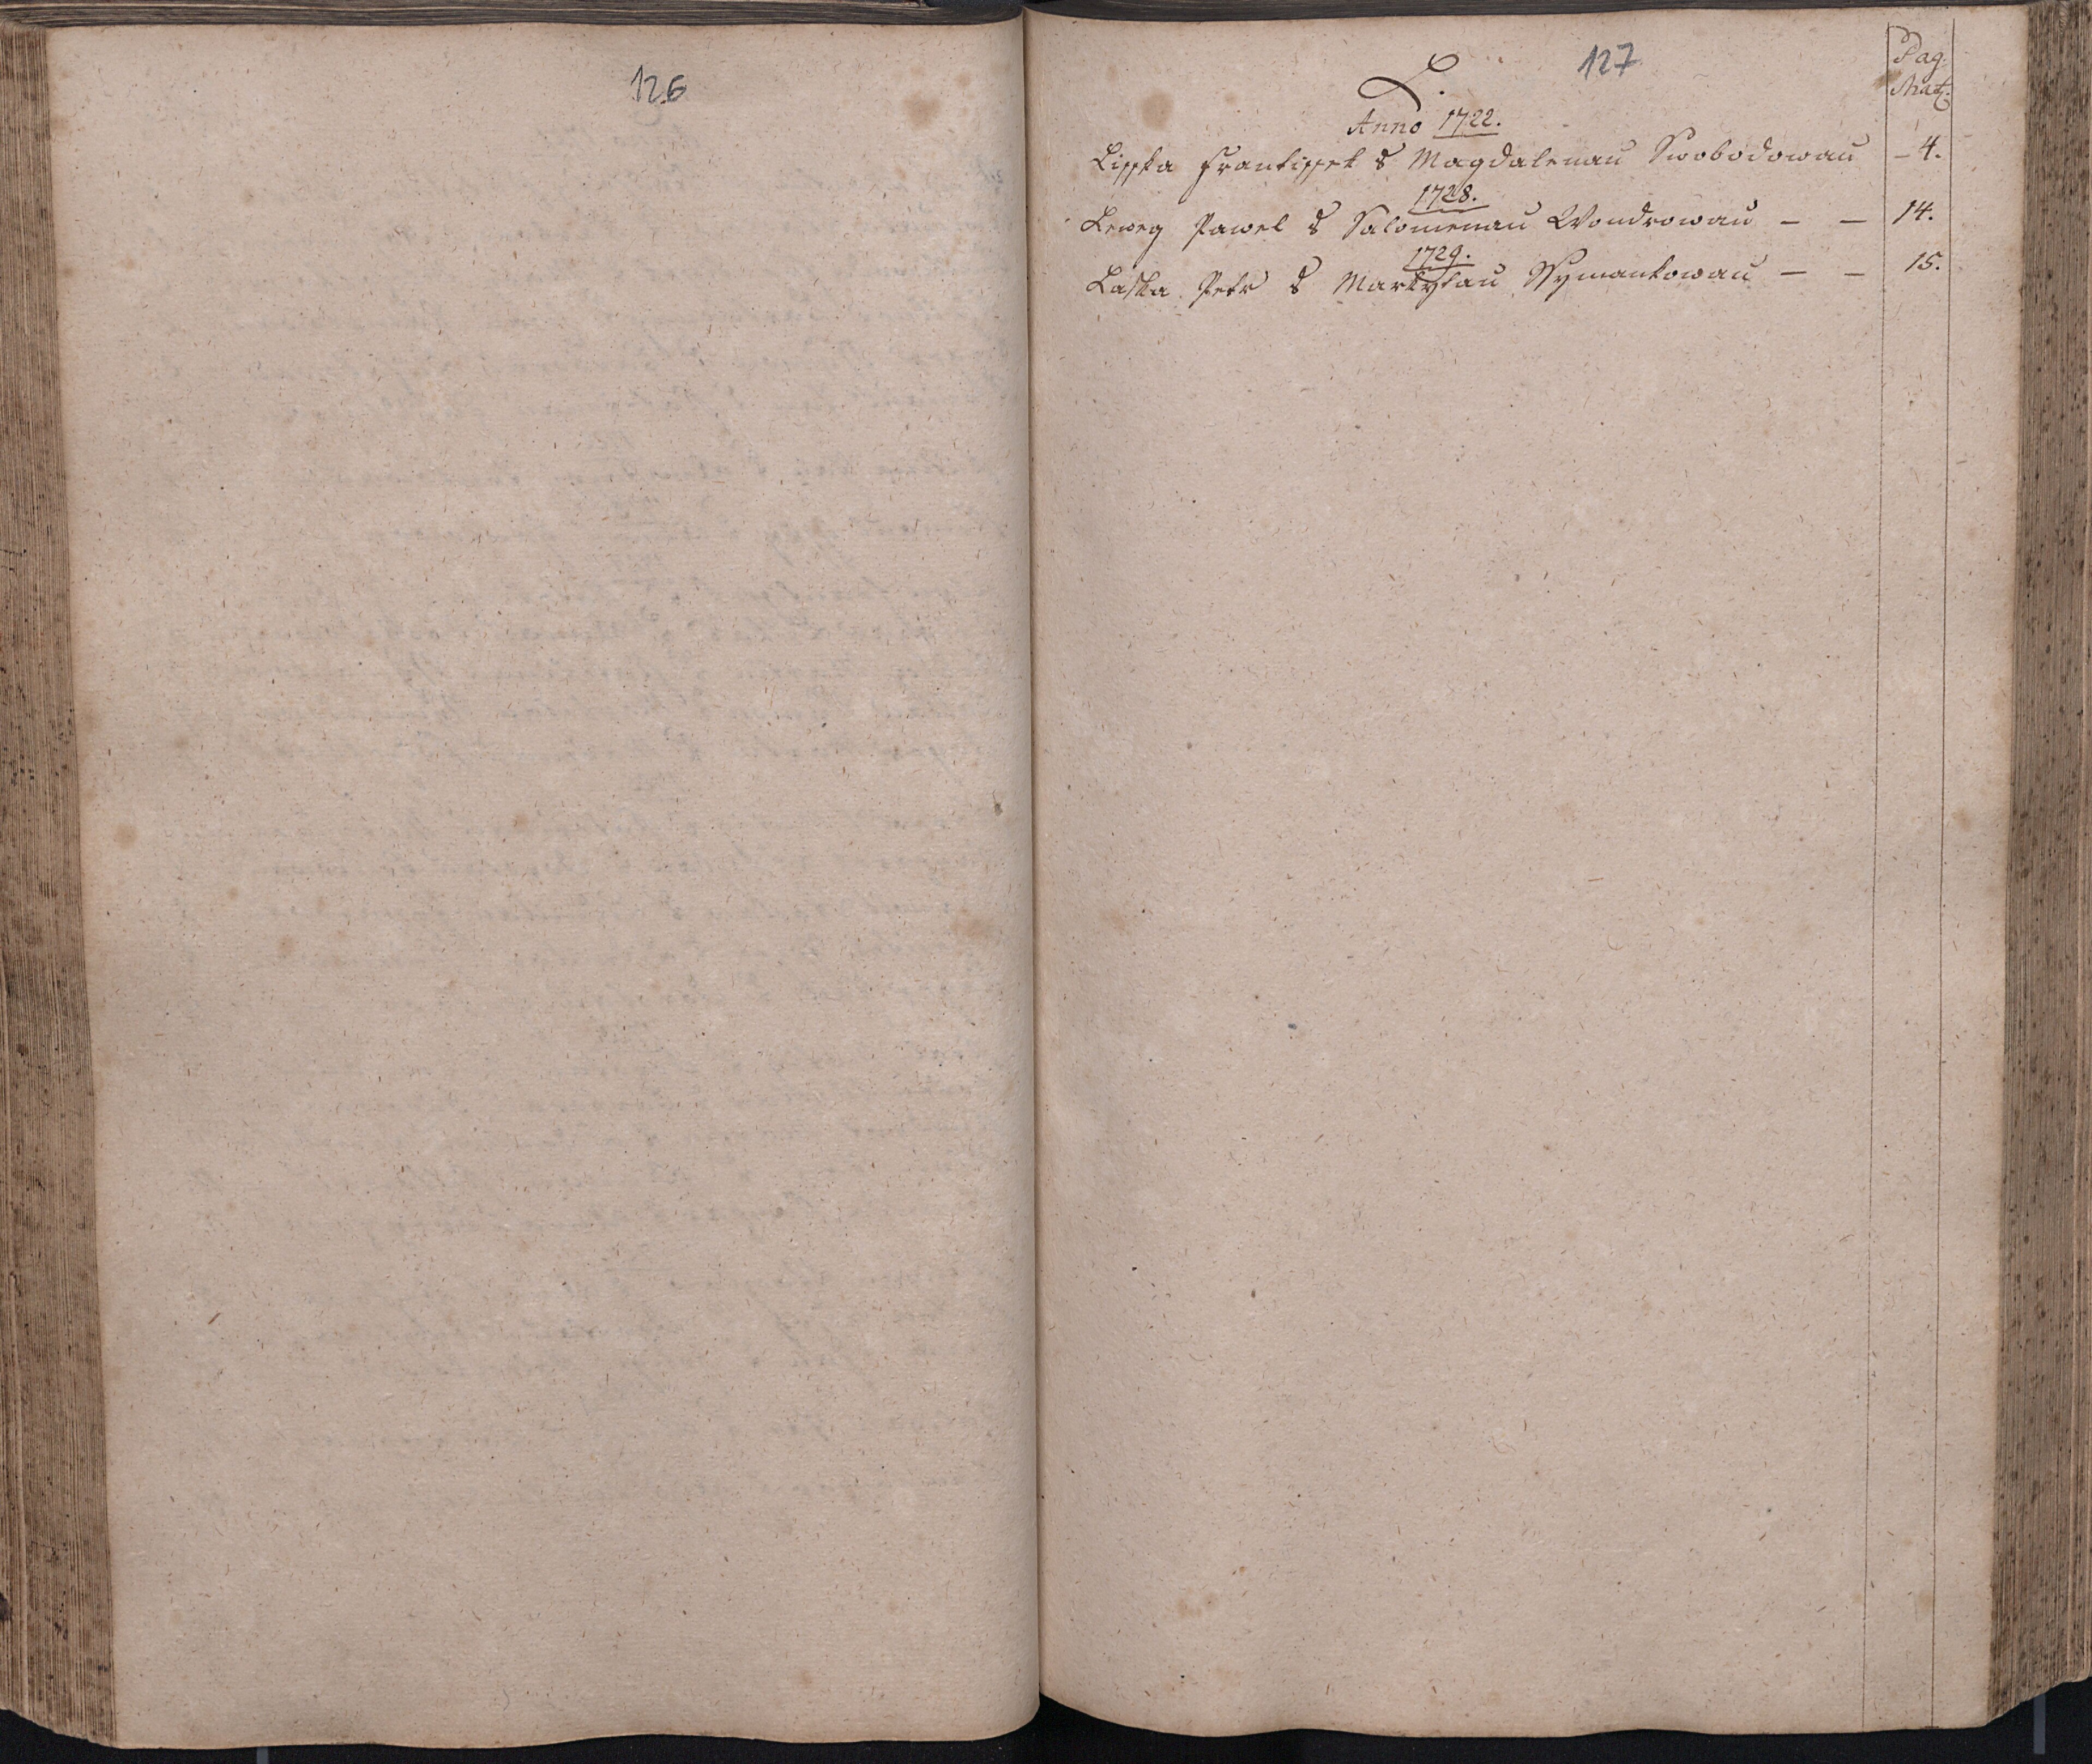 126
127
Pag:
Mat:
L.
Anno 1722.
Lisska Frantissek s Magdalenau Swobodowau – 4.
1728.
Lewey Pawel s Salomenau Wondrowau – – 14.
1729.
Laska Petr s Markytau Ssymankowau – – 15.